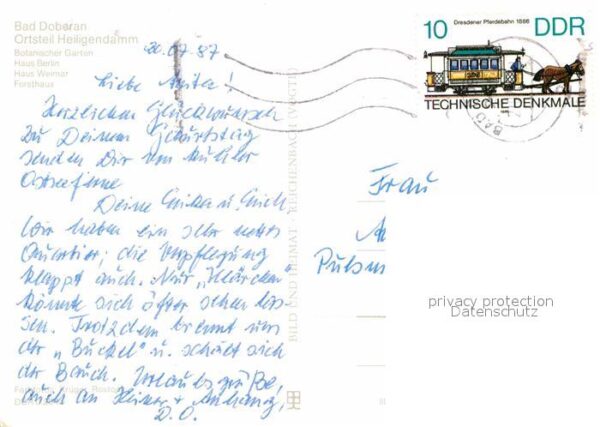 Bad Doberan
Ortsteil Heiligendamm
Botanischer Garten
Haus Berlin
Haus Weimar
Forsthaus
20.07.87
Liebe Anita!
Herzlichen Glückwunsch
zu Deinem Geburtstag
senden Dir von
Ostsee
Deine Erika u.
Wir haben ein sehr nettes
Quartier; die Verpflegung
klappt auch. Nur „Klärchen"
könnte sich öfter sehen las-
sen. Trotzdem brennt uns
der „Buckel" u. schält sich
der Bauch. Urlaubsgrüße,
auch an Heiner + Anhang,
D.O.
BILD UND HEIMAT REICHENBACH (VOGTL)
Dresdener Pferdebahn 1886
10 DDR
TECHNISCHE DENKMALE
BAD
Frau
Pulsn
privacy protection
Datenschutz